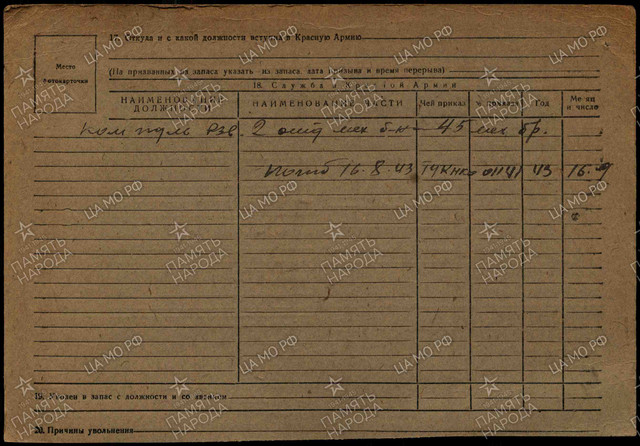 17. Откуда и с какой должности вступил в Красную Армию
Место
фотокарточки
(На призванных из запаса указать из запаса, дата призыва и время перерыва)
18. Служба в Красной Армии
НАИМЕНОВАНИЕ ДОЛЖНОСТИ
НАИМЕНОВАНИЕ ЧАСТИ
Чей приказ
№ приказа
Год
Месяц и число
Ком пульрзв. 2 отд мех б-на 45 мех бр.
Погиб 16.8.43 ГУКНКО 01141 43 16.9
19. Уволен в запас с должности и со званием
20. Причины увольнения
ПАМЯТЬ НАРОДА
ЦА МО РФ